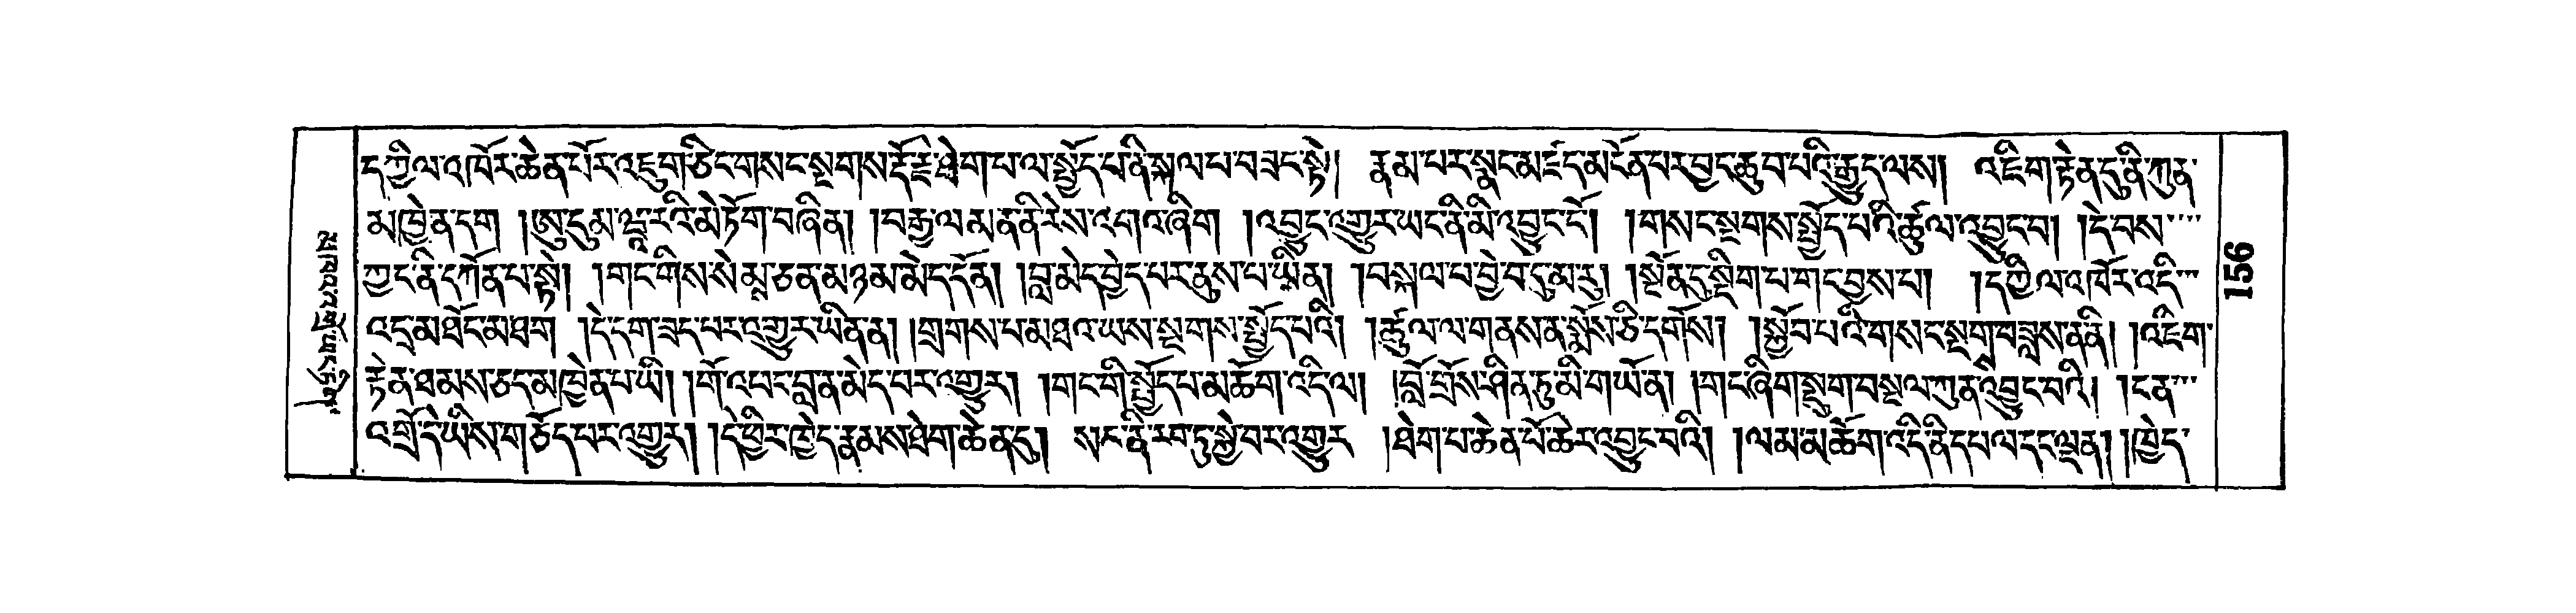 དཀྱིལ་འཁོར་ཆེན་པོར་འཇུག་ཅིང་གསང་སྔགས་རྡོ་རྗེ་ཐེག་པ་ལ་སྤྱོད་པ་ནི་སྐལ་པ་བཟང་སྟེ། རྣམ་པར་སྣང་མཛད་མངོན་པར་བྱང་ཆུབ་པའི་རྒྱུད་ལས། འཇིག་རྟེན་དུ་ནི་ཀུན་
མཁྱེན་དག །ཨུ་དུམ་ཝཱ་རའི་མེ་ཏོག་བཞིན། །བརྒྱ་ལམ་ན་ནི་རེས་འགའ་ཞིག །འབྱུང་འགྱུར་ཡང་ནི་མི་འབྱུང་ངོ། །གསང་སྔགས་སྤྱོད་པའི་ཚུལ་འབྱུང་བ། །དེ་བས་
ཀྱང་ནི་དཀོན་པ་སྟེ། །གང་གིས་སེམས་ཅན་མཉམ་མེད་དོན། །བླ་མེད་བྱེད་པར་ནུས་པ་ཡིན། །བསྐལ་པ་བྱེ་བ་དུ་མ་རུ། །སྔོན་དུ་སྡིག་པ་གང་བྱས་པ། །དཀྱིལ་འཁོར་འདི་
འདྲ་མཐོང་མ་ཐག །དེ་དག་ཟད་པར་འགྱུར་ཡིན་ན། །གྲགས་པ་མཐའ་ཡས་སྔགས་སྤྱོད་པའི། །ཚུལ་ལ་གནས་ན་སྨོས་ཅི་དགོས། །སྐྱོབ་པའི་གསང་སྔགས་བཟླས་ན་ནི། །འཇིག་
རྟེན་ཐམས་ཅད་མཁྱེན་པ་ཡི། །གོ་འཕང་བླ་ན་མེད་པར་འགྱུར། །གང་གི་སྤྱོད་པ་མཆོག་འདི་ལ། །བློ་གྲོས་ཤིན་ཏུ་མི་གཡོ་ན། །གང་ཞིག་སྡུག་བསྔལ་ཀུན་འབྱུང་བའི། །ངན་
འགྲོ་དེ་ཡིས་གཅོད་པར་འགྱུར། །དེ་ཕྱིར་ཁྱེད་རྣམས་ཐེག་ཆེན་དུ། སང་ནི་རབ་ཏུ་སྐྱེ་བར་འགྱུར །ཐེག་པ་ཆེན་པོ་ཆེར་འབྱུང་བའི། །ལམ་མཆོག་འདི་ནི་དཔལ་དང་ལྡན། །ཁྱེད་
156